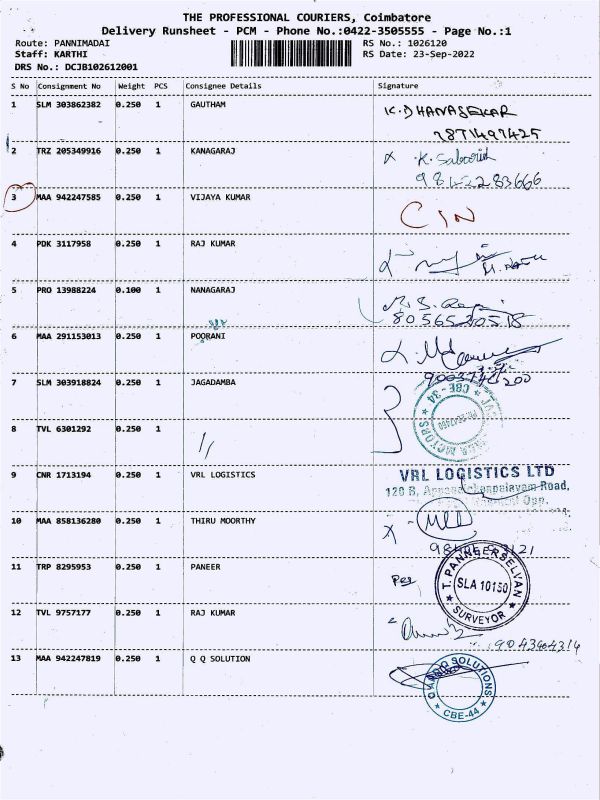 THE PROFESSIONAL COURIERS, Coimbatore
Delivery Runsheet - PCM - Phone No.:0422-3505555 - Page No.:1
Route: PANNIMADAI RS No.: 1026120
Staff: KARTHI RS Date: 23-Sep-2022
DRS No.: DCJB102612001
S No Consignment No Weight PCS Consignee Details Signature
1 SLM 303862382 0.250 1 GAUTHAM K.DHANASEKAR
7871497425
2 TRZ 205349916 0.250 1 KANAGARAJ
3 MAA 942247585 0.250 1 VIJAYA KUMAR
4 PDK 3117958 0.250 1 RAJ KUMAR
5 PRO 13988224 0.100 1 NANAGARAJ
6 MAA 291153013 0.250 1 POORANI
7 SLM 303918824 0.250 1 JAGADAMBA
CBE-34
MOTORS
8 TVL 6301292 0.250 1 "
9 CNR 1713194 0.250 1 VRL LOGISTICS VRL LOGISTICS LTD
Road,
Opp.
10 MAA 858136280 0.250 1 THIRU MOORTHY
11 TRP 8295953 0.250 1 PANEER
T. PANNEERSELVAN
SLA 10150
SURVEYOR
12 TVL 9757177 0.250 1 RAJ KUMAR
13 MAA 942247819 0.250 1 Q Q SOLUTION
SOLUTIONS
CBE-44